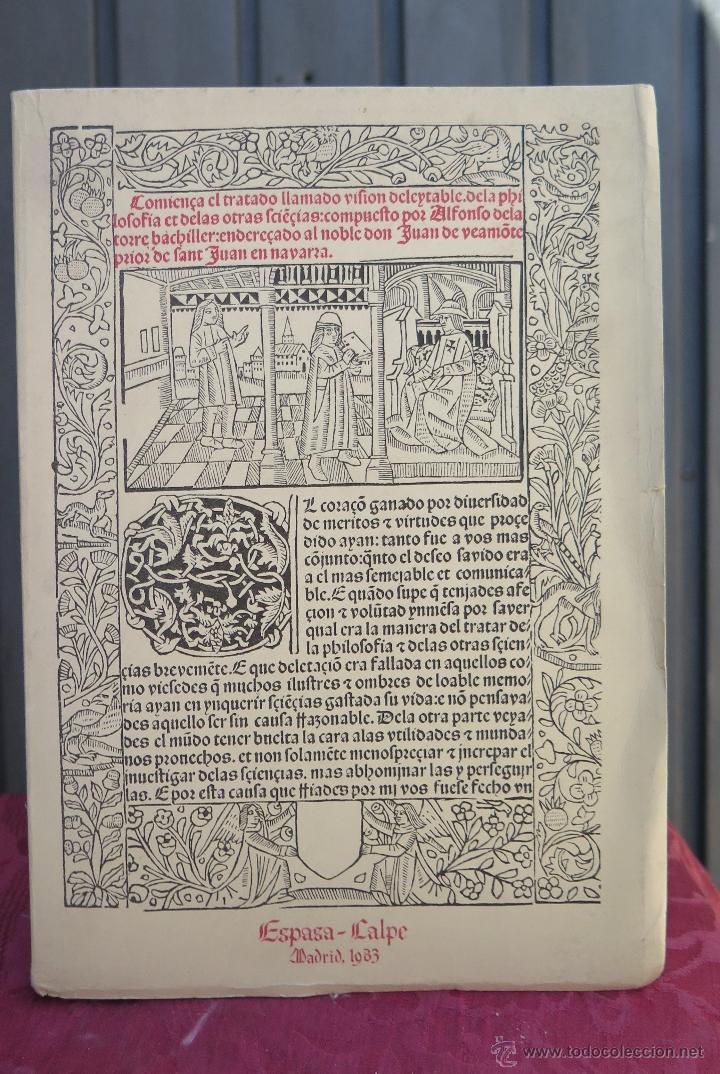 Comiença el tratado llamado vision deleytable. dela phi
losofia et delas otras sciẽçias: compuesto por Alfonso dela
torre bachiller: endereçado al noble don Juan de veamõte
prior de sant Juan en navarra.
L coraçõ ganado por diuersidad
de meritos ⁊ virtudes que proçe
dido ayan: tanto fue a vos mas
cõjunto: qnto el deseo savido era
a el mas semejable et comunica-
ble. E quãdo supe q̃ tenjades afe
çion ⁊ volũtad ynmẽsa por saver
qual era la manera del tratar de-
la philosofia ⁊ delas otras sçien-
çias brevemẽte. E que deletaçiõ era fallada en aquellos co-
mo viesedes q̃ muchos ilustres ⁊ ombres de loable memo-
ria ayan en ynquerir sçiẽçias gastada su vida: e nõ pensava-
des aquello ser sin causa rrazonable. Dela otra parte veya-
des el mũdo tener buelta la cara alas vtilidades ⁊ munda-
nos prouechos. et non solamẽte menospreçiar ⁊ jncrepar el
jnuestigar delas sçiençias. mas abhomjnar las y persegujr
las. E por esta causa que rriades por mj vos fuese fecho vn
Espasa-Calpe
Madrid, 1983
www.todocoleccion.net